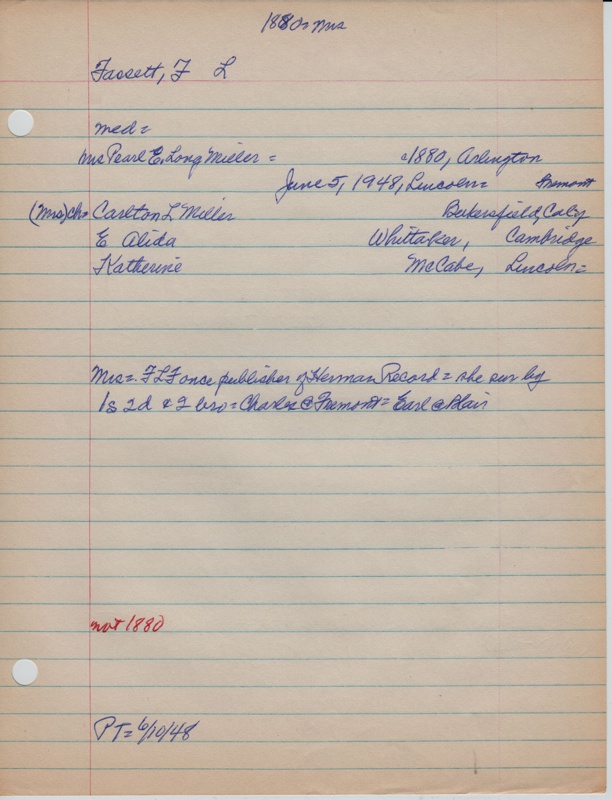 1880= Mrs
Fassett, F L
med=
Mrs Pearl E. Long Miller = c1880, Arlington
June 5, 1948, Lincoln= Fremont
(Mrs) ch= Carlton L Miller Bakersfield, Calif
E Alida Whittaker, Cambridge
Katherine McCabe, Lincoln=
Mrs=. FLF once publisher of Herman Record= she sur by
1s 2d & 2 bro= Charles @ Fremont= Earl @ Blair
not 1880
PT= 6/10/48